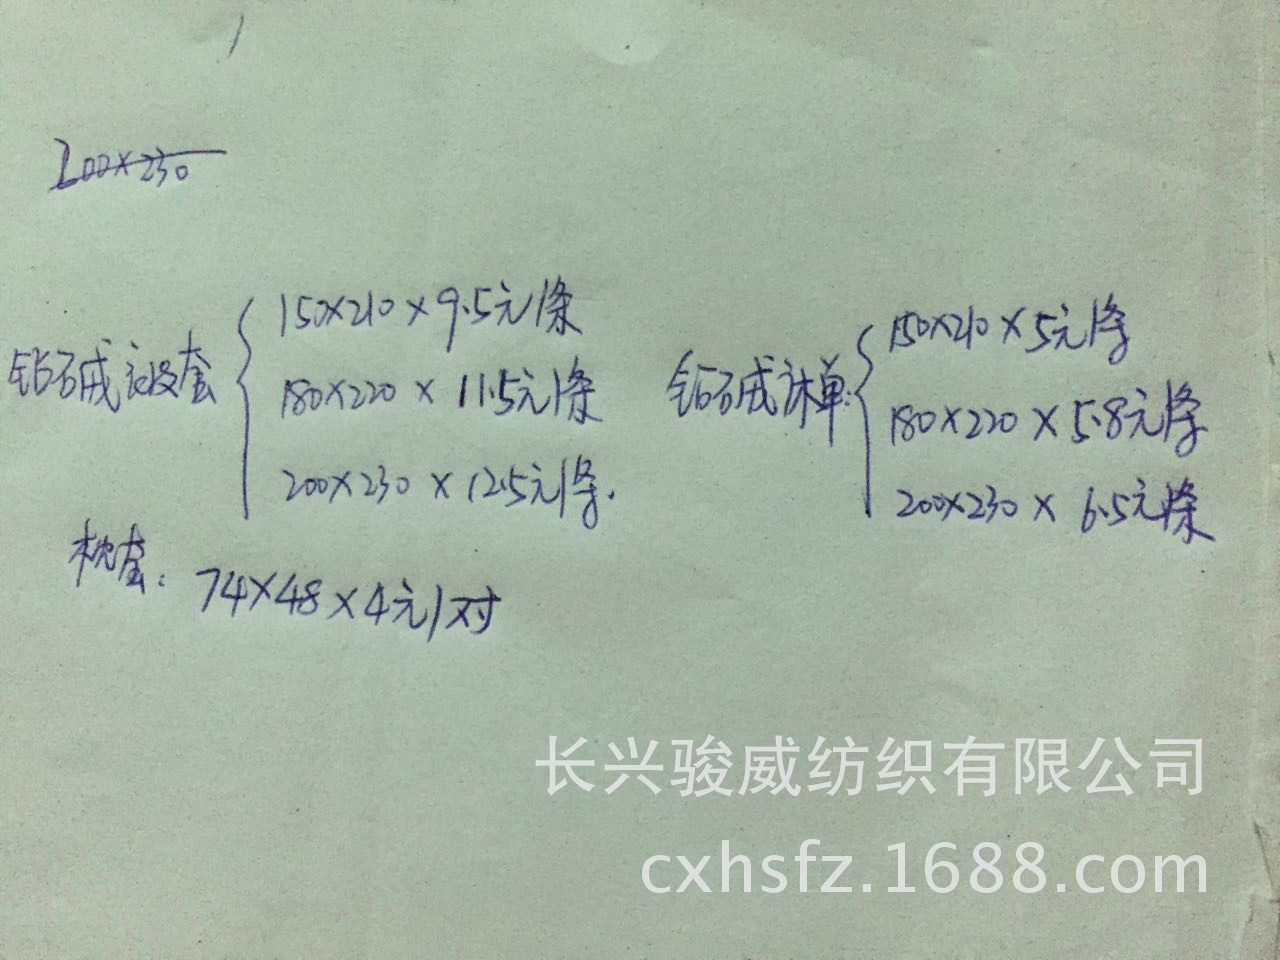 200×230
钻石绒被套 { 150×210 × 9.5元/条
180×220 × 11.5元/条
200×230 × 12.5元/条.
枕套: 74×48 × 4元/对
钻石绒床单: { 150×210 × 5元/条
180×220 × 5.8元/条
200×230 × 6.5元/条
长兴骏威纺织有限公司
cxhsfz.1688.com